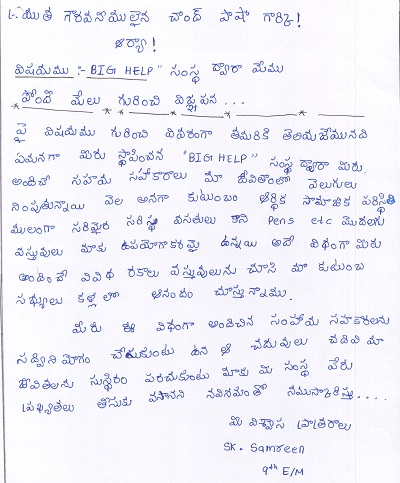 గౌరవనీయులైన చాంద్ పాషా గారికి!
ఆర్యా!
విషయము :- BIG HELP" సంస్థ ద్వారా మేము
పొందే మేలు గురించి విజ్ఞపన ...
పై విషయము గురించి వివరంగా తమరికి తెలియజేయునది
ఏమనగా మిరు స్థాపించిన "BIG HELP" సంస్థ ద్వారా మిరు.
అందించే సహయ సహకారాలు మా జీవితాంలో వెలుగులు
నింపుతున్నాయి వెల అనగా కుటుంబం ఆర్థిక సామాజిక పరిస్థితి
ములంగా సరియైన వసతులు కాని pens etc మొదలగు
వస్తువులు మాకు ఉపయోగాకరమై ఉన్నయి అదే విధంగా మిరు
అందించే వివిధ రకాలు వస్తువులును చూసి మా కుటుంబ
సభ్యులు కళ్ల లో ఆనందం చూస్తున్నాము.
మిరు ఈ విధంగా అందిచిన సంహాయ సహకారలను
సద్వినియోగం చేసుకుంటు ఉన ఆ చదువులు చదివి మా
జీవితలను సుస్థిరం పరచుకుంటు మాకు మి సంస్థ పేరు
ప్రఖ్యతలు తోసుకు నమస్కారిస్తు....
మి విశ్వాస పాత్రరాలు
SK. Samreen
9th E/M